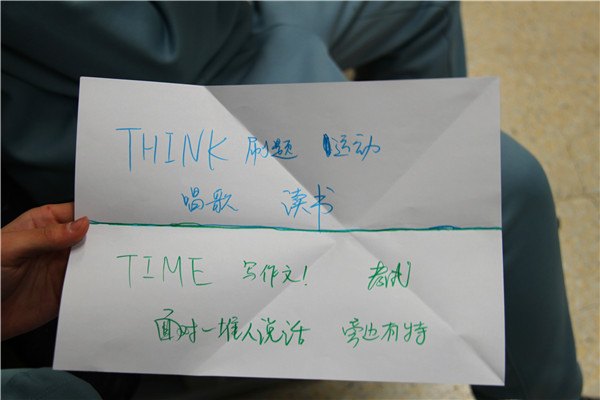 THINK 刷题 运动
唱歌 读书
TIME 写作文! 考试
面对一堆人说话 旁边有特